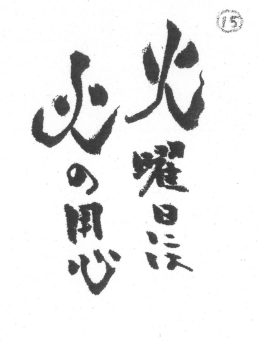 火曜日には
火の用心
15